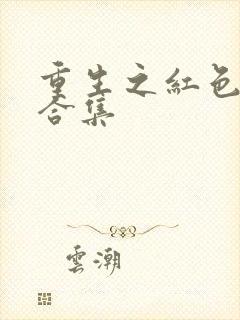 重生之紅色
合集
雲潮